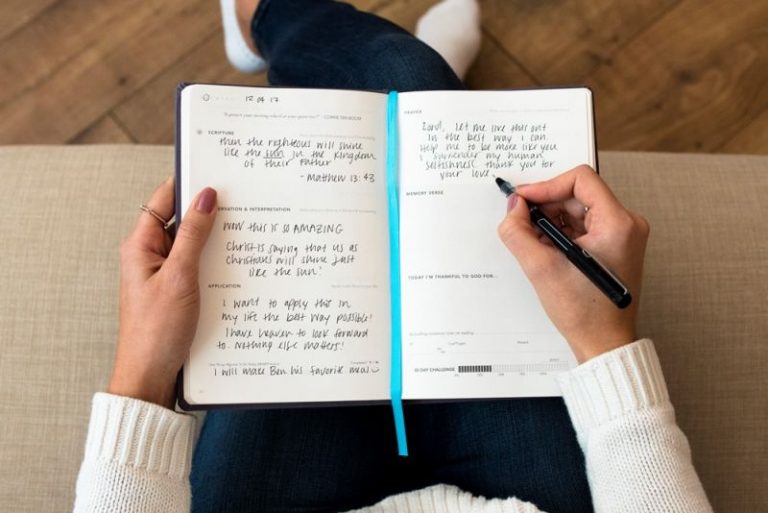 12 04 17
SCRIPTURE
then the righteous will shine
like the sun in the kingdom
of their Father
- Matthew 13:43
& INTERPRETATION
WOW this is so AMAZING
Christ is saying that us as
Christians will shine just
like the sun!
APPLICATION
I want to apply this in
my life the best way possible!
I have heaven to look forward
to. Nothing else matters!
I will make Ben his favorite meal
PRAYER
Lord, let me live this out
in the best way I can
Help me to be more like you
I surrender my human
selfishness thank you for
your love.
MEMORY VERSE
TODAY I'M THANKFUL TO GOD FOR...
DAY CHALLENGE